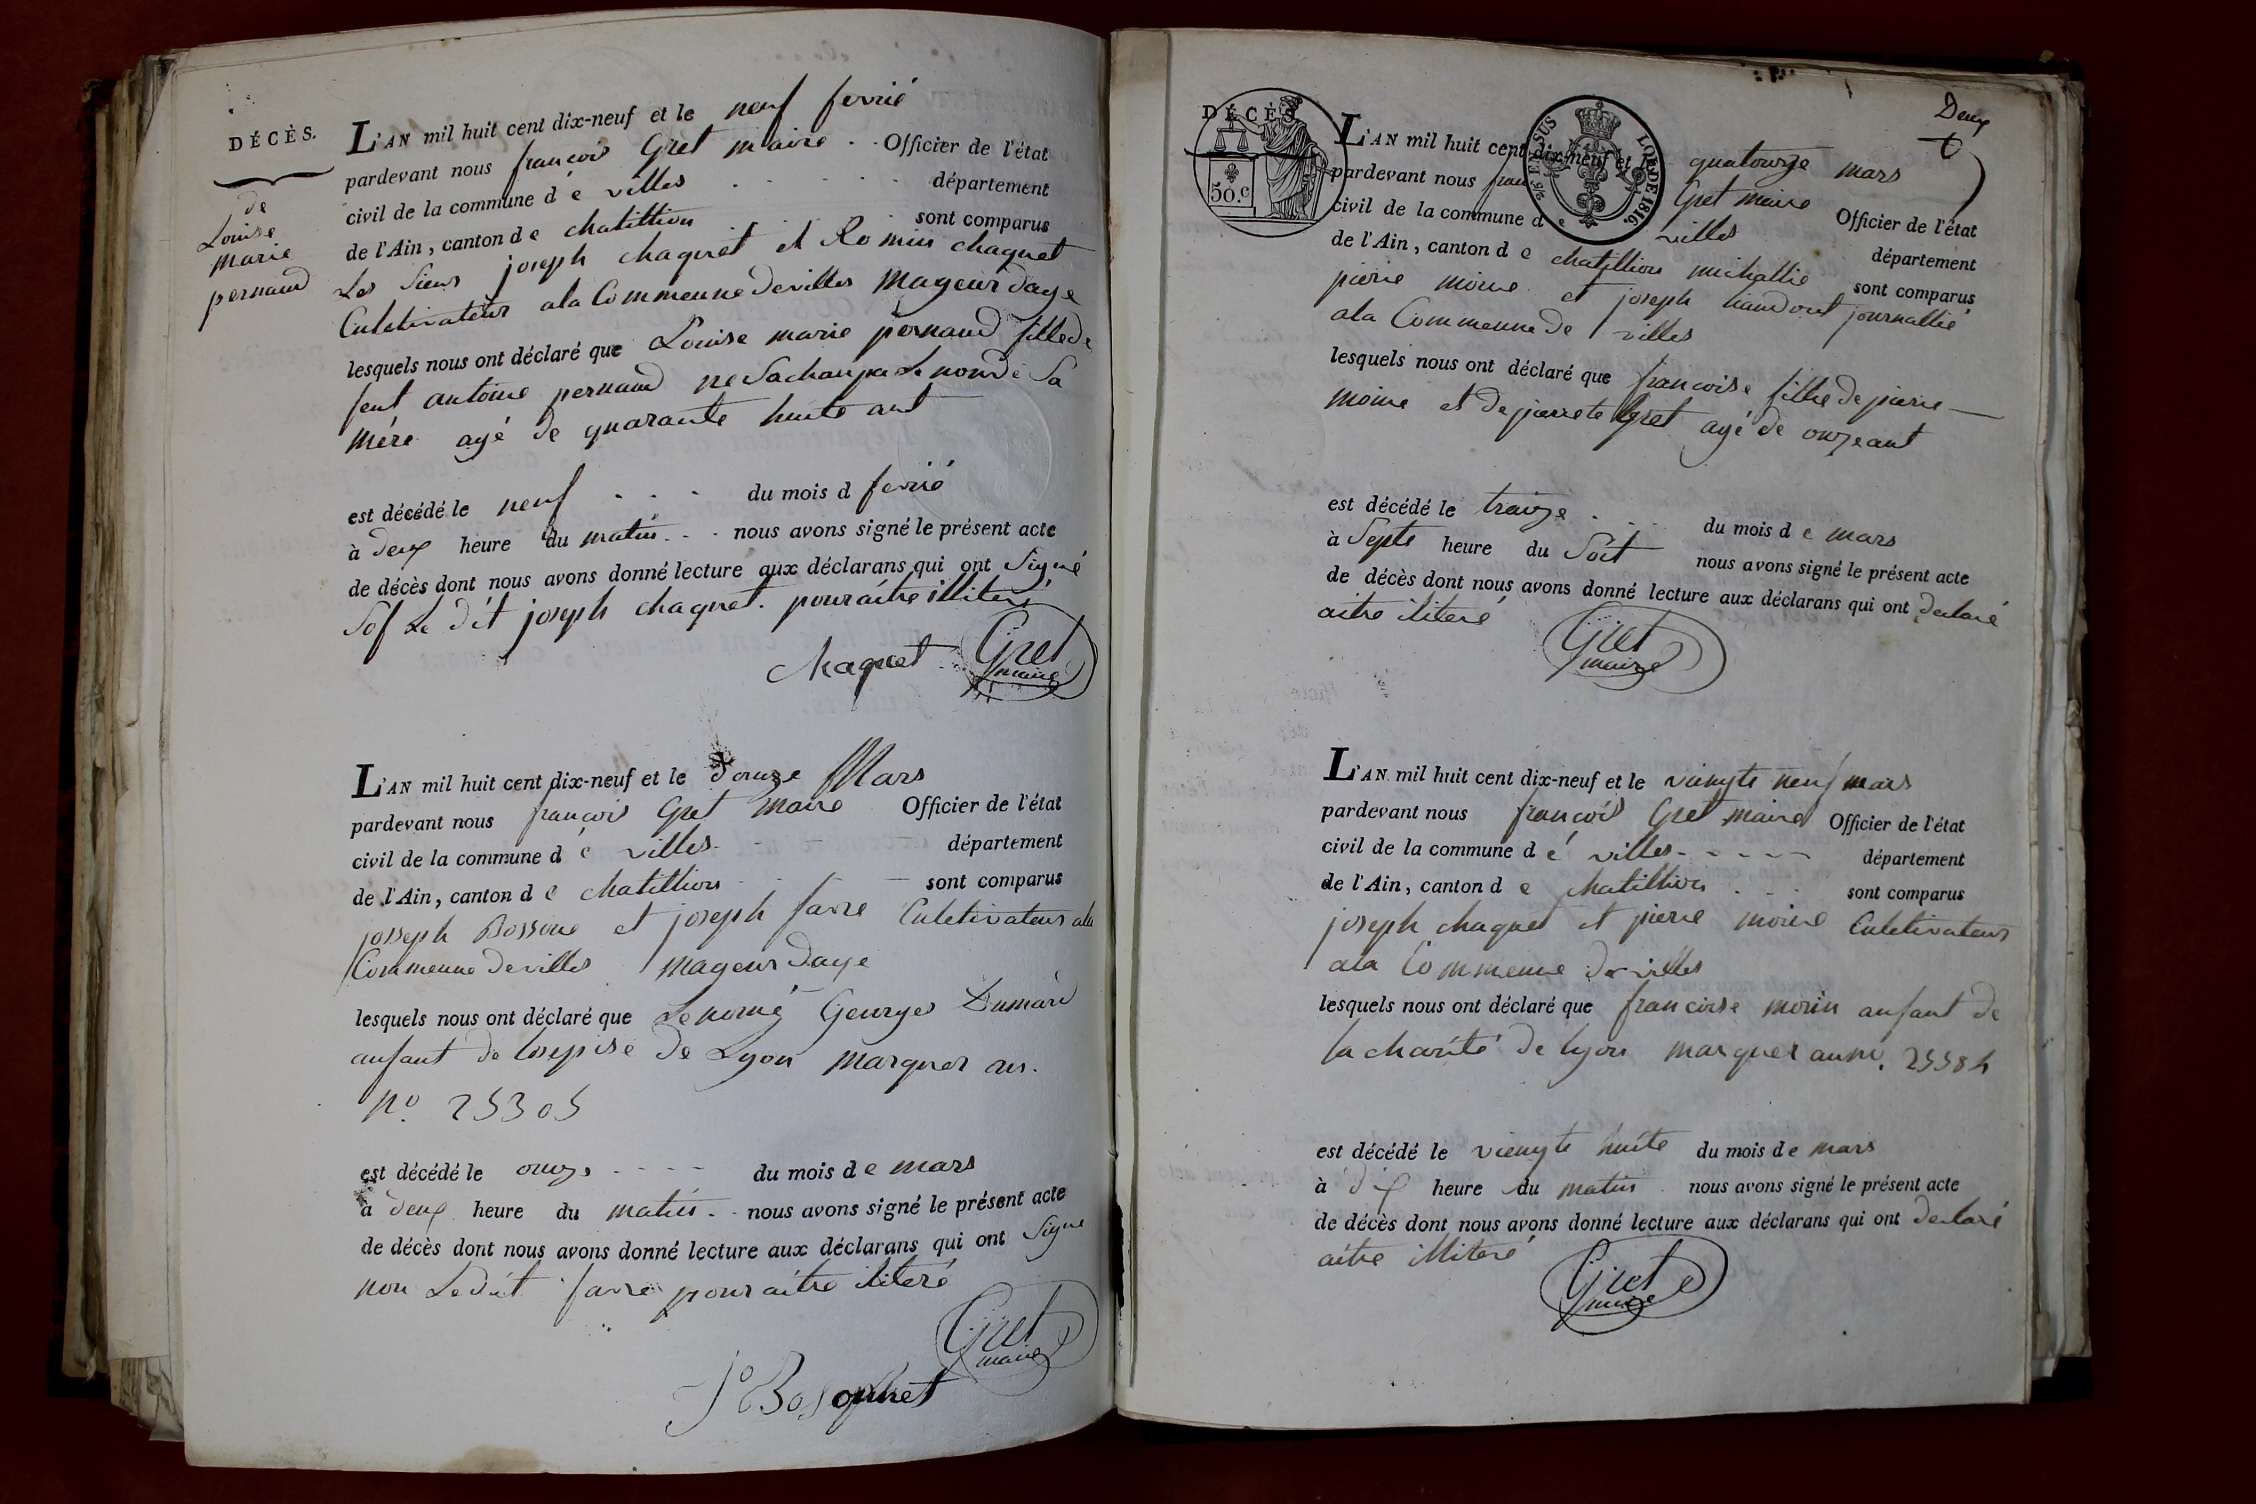 DÉCÈS.
de
Louise
marie
pernaud
L'AN mil huit cent dix-neuf et le neuf fevrié
pardevant nous francois Gret maire Officier de l'état
civil de la commune d é villes département
de l'Ain, canton d e chatillion sont comparus
Les Sieurs joseph chaquet et Romin chaquet
Culetivateur ala Commeune de villes mageur dage
lesquels nous ont déclaré que Louise marie pernaud fille de
feut antoine pernaud ne Sachan pa Le nom de Sa
mére agé de quarante huite ant
est décédé le neuf du mois d fevrié
à deux heure du matin nous avons signé le présent acte
de décès dont nous avons donné lecture aux déclarans qui ont Signé
Sof Le dit joseph chaquet. pour aitre illiteré
Chaquet Gret
maire
L'AN mil huit cent dix-neuf et le douze Mars
pardevant nous francois Gret maire Officier de l'état
civil de la commune d é villes département
de l'Ain, canton d e chatillion sont comparus
josseph Bossone et joseph favre Culetivateur ala
Commeune de villes mageur dage
lesquels nous ont déclaré que Le nomé George Dumard
anfant de losepise de Lyon marquer au.
No. 25305
est décédé le onze du mois d e mars
à deux heure du matin nous avons signé le présent acte
de décès dont nous avons donné lecture aux déclarans qui ont Signe
non Le dit favre pour aitre iliteré
Gret
maire
Jo Bosonnet
DÉCÈS
50.c
EN SUS
LOI DE 1816.
Deux
L'AN mil huit cent dix-neuf et le quatourze mars
pardevant nous fran Gret maire Officier de l'état
civil de la commune d e villes département
de l'Ain, canton d e chatillion michallie sont comparus
pierre moine et joseph journallié
ala Commeune de villes
lesquels nous ont déclaré que francoise fillie de pierre
moine et de pierrete Gret agé de onze ant
est décédé le traize du mois d e mars
à Septe heure du Soit nous avons signé le présent acte
de décès dont nous avons donné lecture aux déclarans qui ont declaré
aitre iliteré
Gret
maire
L'AN mil huit cent dix-neuf et le viengte neuf mars
pardevant nous francois Gret maire Officier de l'état
civil de la commune d é villes département
de l'Ain, canton d e chatillion sont comparus
joseph chaquet et pierre moine Culetivateur
ala Commeune de villes
lesquels nous ont déclaré que francoise morin anfant de
la charité de lyon marquer au no. 25584
est décédé le viengte huite du mois d e mars
à dix heure du matin nous avons signé le présent acte
de décès dont nous avons donné lecture aux déclarans qui ont declaré
aitre illiteré
Gret
maire